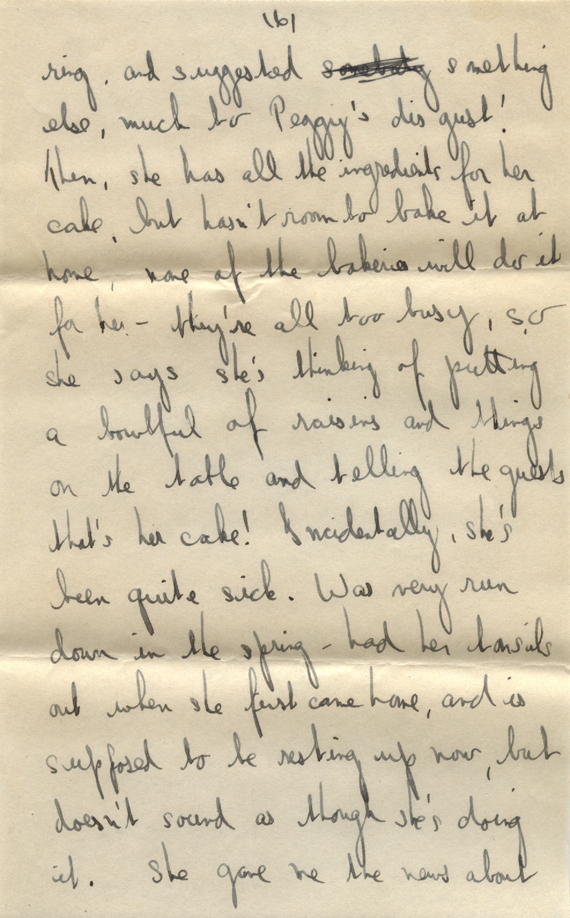 16)
ring, and suggested somebody something
else, much to Peggy's disgust!
Then, she has all the ingredients for her
cake, but hasn't room to bake it at
home, none of the bakeries will do it
for her – they're all too busy, so
she says she's thinking of putting
a bowlful of raisins and things
on the table and telling the guests
that's her cake! Incidentally, she's
been quite sick. Was very run
down in the spring – had her tonsils
out when she first came home, and is
supposed to be resting up now, but
doesn't sound as though she's doing
it. She gave me the news about